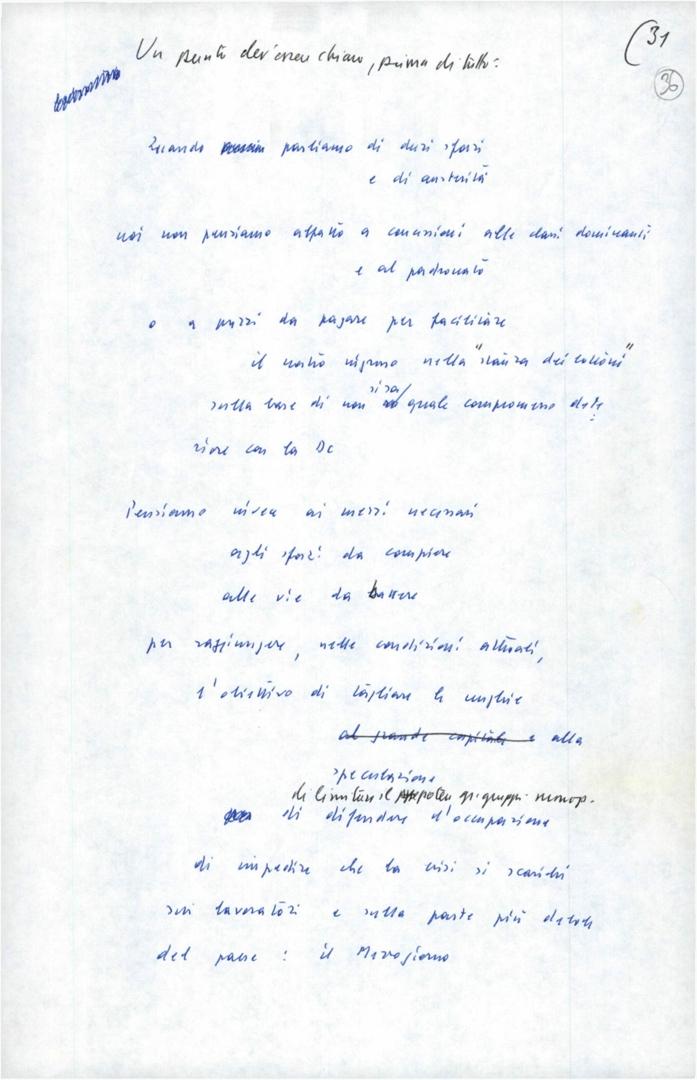 (31
36
Un punto dev'essere chiaro, prima di tutto:
Quando parliamo di duri sforzi
e di austerità
noi non pensiamo affatto a concessioni alle classi dominanti
e al padronato
o a prezzi da pagare per facilitare
il nostro ingresso nella "stanza dei bottoni"
sulla base di non si sa quale compromesso dete
riore con la Dc
Pensiamo invece ai mezzi necessari
agli sforzi da compiere
alle vie da battere
per raggiungere, nelle condizioni attuali,
l'obiettivo di tagliare le unghie
al grande capitale e alla
speculazione
di limitare il potere gruppi monop.
di difendere l'occupazione
di impedire che la crisi si scarichi
sui lavoratori e sulla parte più debole
del paese: il Mezzogiorno